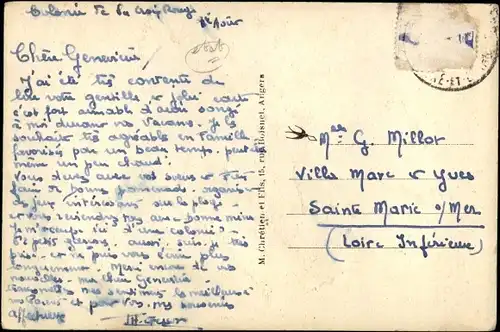 Colonie de la Croix Rouge
1er Août
Chère Geneviève
J'ai été très contente de
lire votre gentille carte
c'est fort aimable d'avoir songé
à moi durant vos vacances. Je
souhaite très agréable en famille
favorisé par un beau temps. peut être
même un peu chaud.
Vous devez avec vos sœurs
faire de bonnes promenades. organiser
de jeux intéressants sur la plage.
et vous reviendrez sans bonne mine
Je m'occupe ici d'une colonie
petits garçons. aussi suis je très
prise. et ne puis vous écrire plus
longuement. Merci encore de vos
nouvelles. ma chère Geneviève
mes sentiments les meilleurs à
et pour vous. mes souvenirs
affectueux
M. Chrétien et Fils, 15, rue Boisnet, Angers
Melle G. Millot
Villa Marc & Yves
Sainte Marie s/Mer
(Loire Inférieure)